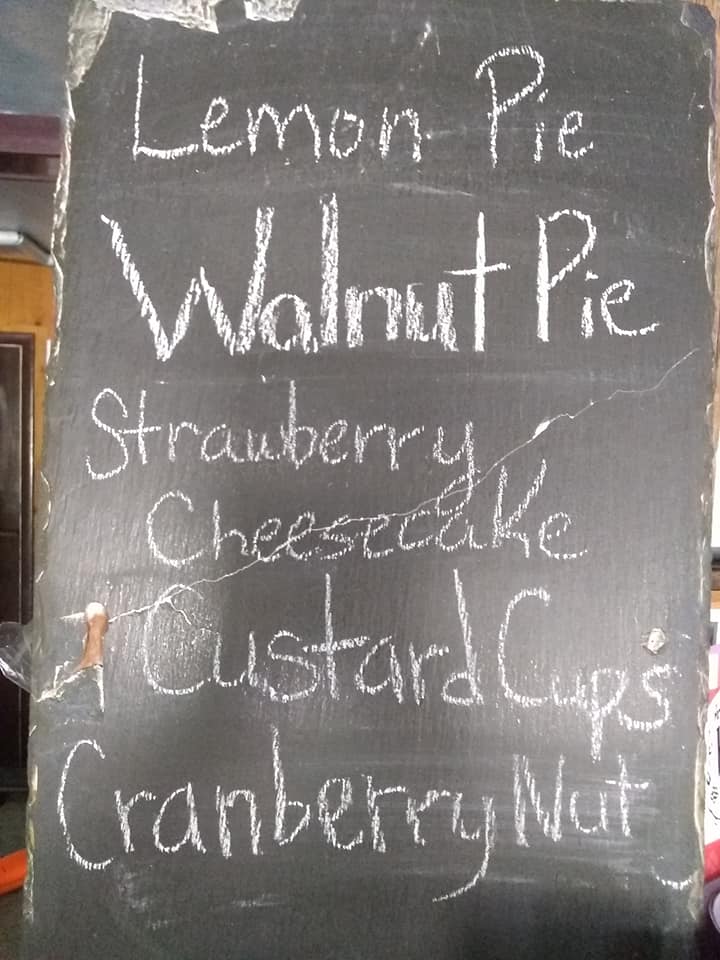 Lemon Pie
Walnut Pie
Strawberry
Cheesecake
Custard Cups
Cranberry Nut